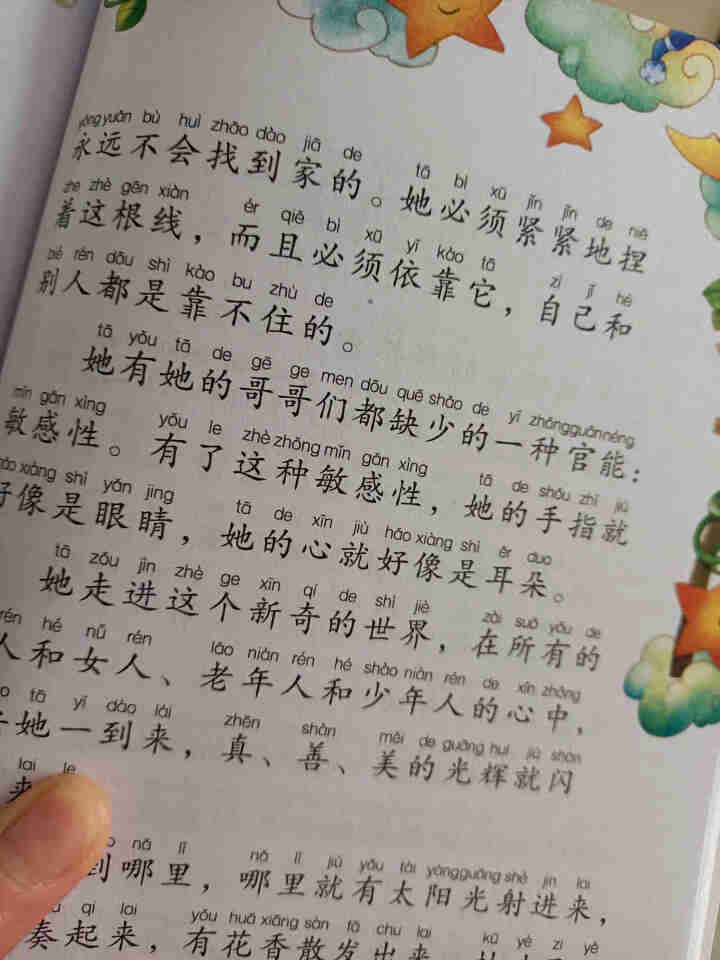 yǒng yuǎn bù huì zhǎo dào jiā de tā bì xū jǐn jǐn de niē
永远不会找到家的。她必须紧紧地捏
zhe zhè gēn xiàn ér qiě bì xū yī kào tā zì jǐ hé
着这根线，而且必须依靠它，自己和
bié rén dōu shì kào bu zhù de
别人都是靠不住的。
tā yǒu tā de gē ge men dōu quē shǎo de yī zhǒng guān néng
她有她的哥哥们都缺少的一种官能：
mǐn gǎn xìng yǒu le zhè zhǒng mǐn gǎn xìng tā de shǒu zhǐ jiù
敏感性。有了这种敏感性，她的手指就
hǎo xiàng shì yǎn jing tā de xīn jiù hǎo xiàng shì ěr duo
好像是眼睛，她的心就好像是耳朵。
tā zǒu jìn zhè ge xīn qí de shì jiè zài suǒ yǒu de
她走进这个新奇的世界，在所有的
rén hé nǚ rén lǎo nián rén hé shào nián rén de xīn zhōng
人和女人、老年人和少年人的心中，
tā yī dào lái zhēn shàn měi de guāng huī jiù shǎn
她一到来，真、善、美的光辉就闪
lai le
来
nǎ lǐ nǎ lǐ jiù yǒu tài yáng guāng shè jìn lai
到哪里，哪里就有太阳光射进来，
qi lai yǒu huā xiāng sàn fā chu lai kū yè zi yě
奏起来，有花香散发出来